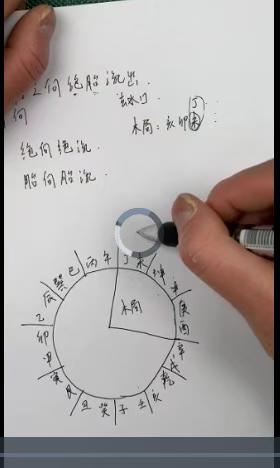 之向绝胎流出.
向 去水口 丁
木局：亥卯未
绝向绝流.
胎向胎流.
巽 巳 丙 午 丁 未 坤 申 庚 酉 辛 戌 乾 亥 壬 子 癸 丑 艮 寅 甲 卯 乙 辰
木局